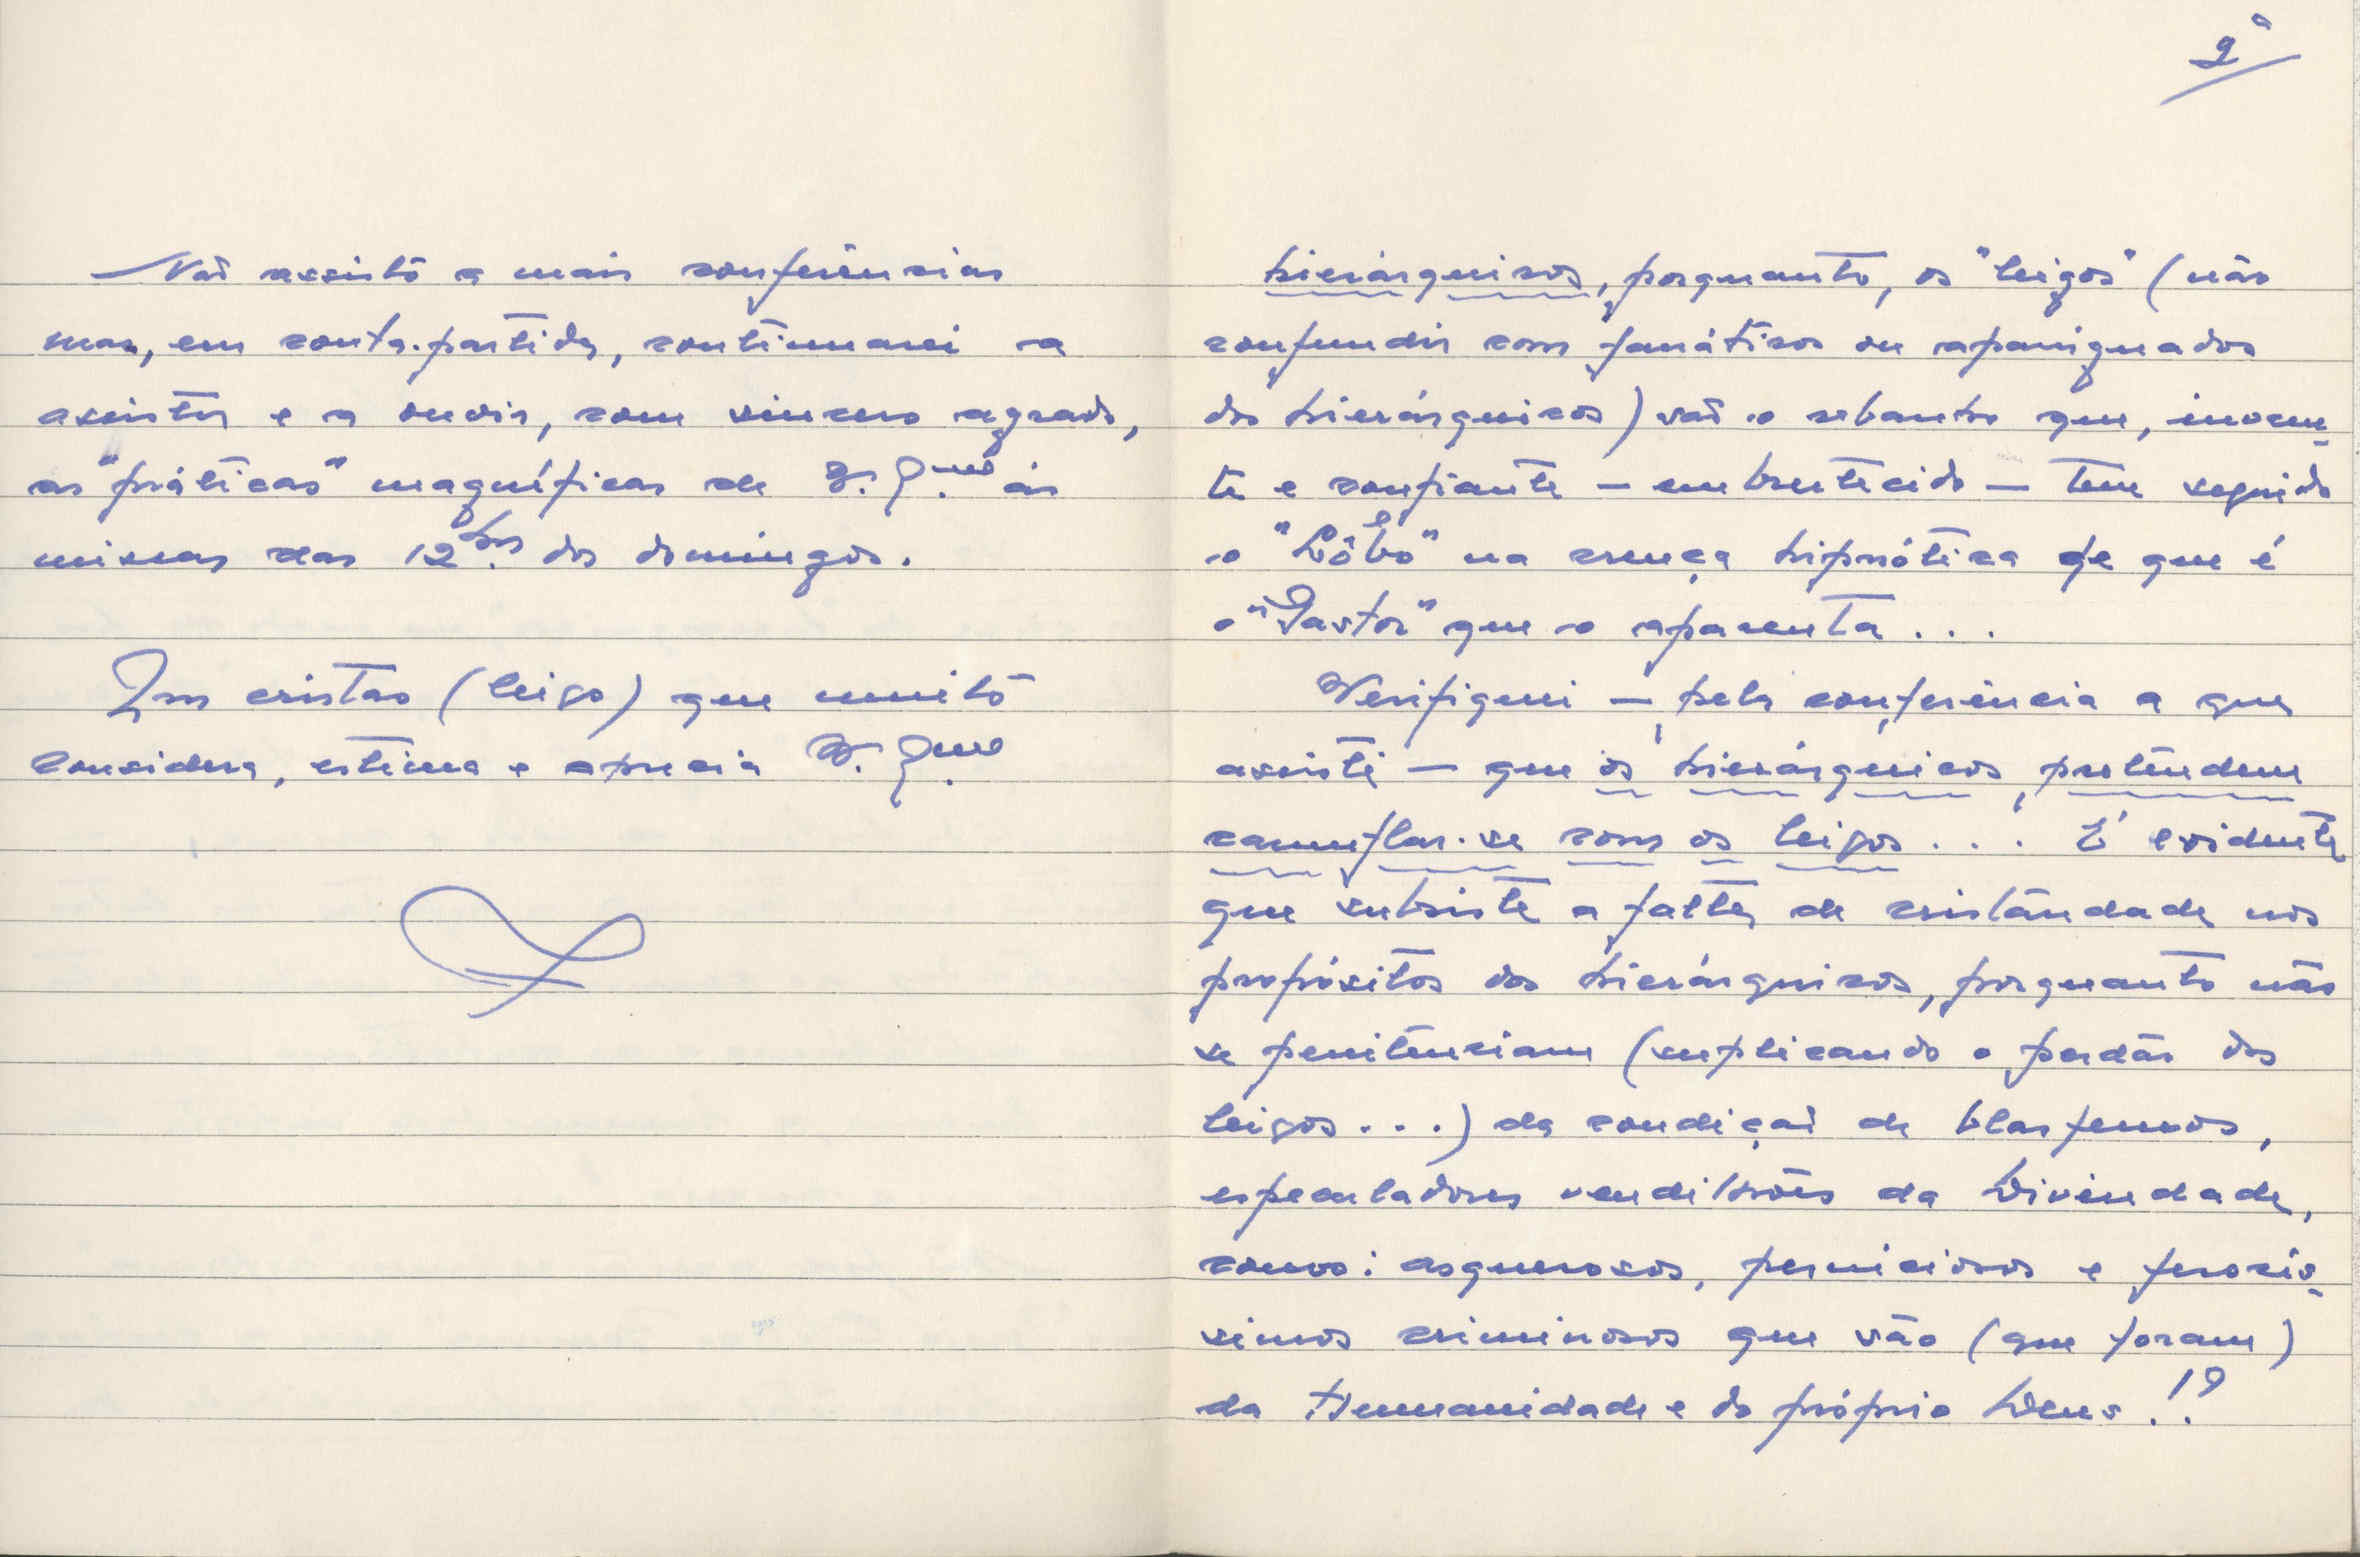 Não assisto a mais conferências
mas, em conta-partida, continuarei a
assistir e a ouvir, com sincero agrado,
as "práticas" magníficas de às
missas das 12 hrs dos domingos.
Um cristão (leigo) que muito
considera, estima e aprecia
2ª
hierárquicos, porquanto, os "leigos" (não
confundir com fanáticos ou apaniguados
dos hierárquicos) são o rebanho que, inocen-
te e confiante — embrutecido — tem seguido
o "Lôbo" na crença hipnótica de que é
o "Pastor" que o apacenta...
Verifiquei — pela conferência a que
assisti — que os hierárquicos pretendem
camuflar-se com os leigos... É evidente
que subsiste a falta de cristandade nos
propósitos dos hierárquicos, porquanto não
se penitenciam (suplicando o perdão dos
leigos...) da condição de blasfemos,
especuladores vendilhões da Divindade,
como: asquerosos, perniciosos e ferocís-
simos criminosos que são (que foram)
da Humanidade e do próprio Deus!?